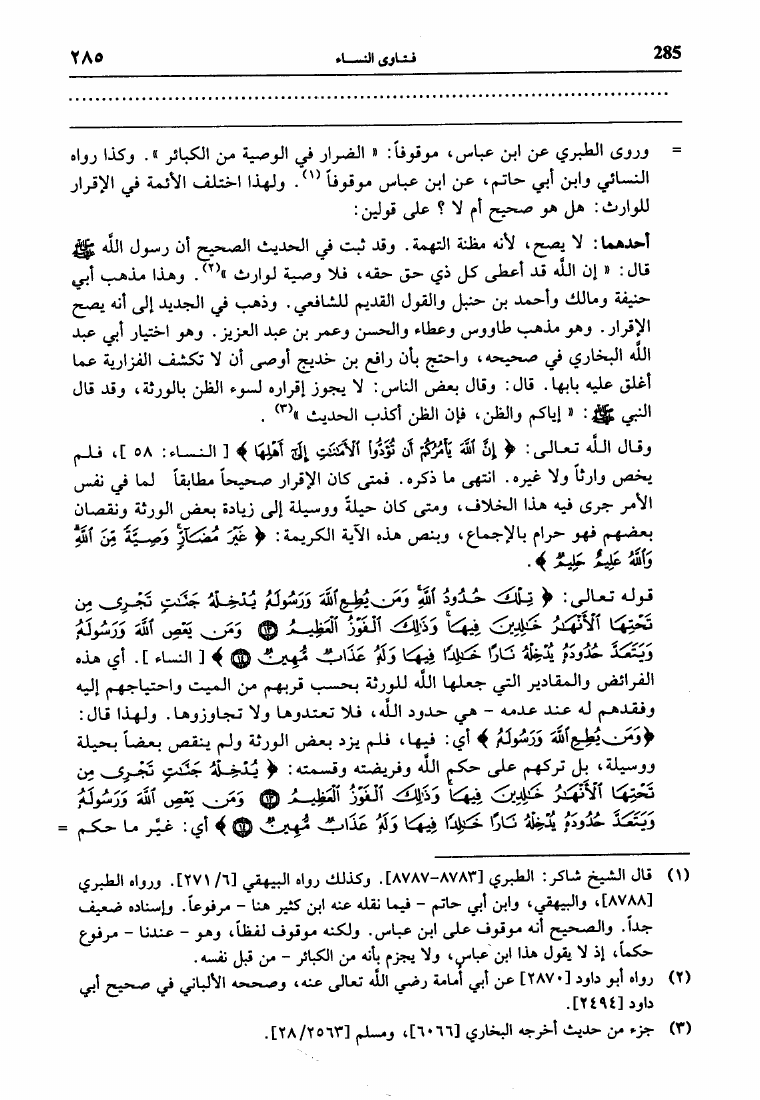 285 فتاوى النساء ٢٨٥
= وروى الطبري عن ابن عباس، موقوفاً: « الضرار في الوصية من الكبائر ». وكذا رواه
النسائي وابن أبي حاتم، عن ابن عباس موقوفاً (١). ولهذا اختلف الأئمة في الإقرار
للوارث: هل هو صحيح أم لا ؟ على قولين:
أحدهما: لا يصح، لأنه مظنة التهمة. وقد ثبت في الحديث الصحيح أن رسول الله ﷺ
قال: « إن الله قد أعطى كل ذي حق حقه، فلا وصية لوارث »(٢). وهذا مذهب أبي
حنيفة ومالك وأحمد بن حنبل والقول القديم للشافعي. وذهب في الجديد إلى أنه يصح
الإقرار. وهو مذهب طاووس وعطاء والحسن وعمر بن عبد العزيز. وهو اختيار أبي عبد
الله البخاري في صحيحه، واحتج بأن رافع بن خديج أوصى أن لا تكشف الفزارية عما
أغلق عليه بابها. قال: وقال بعض الناس: لا يجوز إقراره لسوء الظن بالورثة، وقد قال
النبي ﷺ: « إياكم والظن، فإن الظن أكذب الحديث »(٣) .
وقال الله تعالى: ﴿ إِنَّ ٱللَّهَ يَأْمُرُكُمْ أَن تُؤَدُّوا۟ ٱلْأَمَـٰنَـٰتِ إِلَىٰٓ أَهْلِهَا ﴾ [ النساء: ٥٨ ]، فلم
يخص وارثاً ولا غيره. انتهى ما ذكره. فمتى كان الإقرار صحيحاً مطابقاً لما في نفس
الأمر جرى فيه هذا الخلاف، ومتى كان حيلةً ووسيلة إلى زيادة بعض الورثة ونقصان
بعضهم فهو حرام بالإجماع، وبنص هذه الآية الكريمة: ﴿ غَيْرَ مُضَآرٍّ ۚ وَصِيَّةً مِّنَ ٱللَّهِ ۗ
وَٱللَّهُ عَلِيمٌ حَلِيمٌ ﴾.
قوله تعالى: ﴿ تِلْكَ حُدُودُ ٱللَّهِ ۚ وَمَن يُطِعِ ٱللَّهَ وَرَسُولَهُۥ يُدْخِلْهُ جَنَّـٰتٍ تَجْرِى مِن
تَحْتِهَا ٱلْأَنْهَـٰرُ خَـٰلِدِينَ فِيهَا ۚ وَذَٰلِكَ ٱلْفَوْزُ ٱلْعَظِيمُ ١٣ وَمَن يَعْصِ ٱللَّهَ وَرَسُولَهُۥ
وَيَتَعَدَّ حُدُودَهُۥ يُدْخِلْهُ نَارًا خَـٰلِدًا فِيهَا وَلَهُۥ عَذَابٌ مُّهِينٌ ١٤ ﴾ [ النساء ]. أي هذه
الفرائض والمقادير التي جعلها الله للورثة بحسب قربهم من الميت واحتياجهم إليه
وفقدهم له عند عدمه - هي حدود الله، فلا تعتدوها ولا تجاوزوها. ولهذا قال:
﴿وَمَن يُطِعِ ٱللَّهَ وَرَسُولَهُۥ ﴾ أي: فيها، فلم يزد بعض الورثة ولم ينقص بعضاً بحيلة
ووسيلة، بل تركهم على حكم الله وفريضته وقسمته: ﴿ يُدْخِلْهُ جَنَّـٰتٍ تَجْرِى مِن
تَحْتِهَا ٱلْأَنْهَـٰرُ خَـٰلِدِينَ فِيهَا ۚ وَذَٰلِكَ ٱلْفَوْزُ ٱلْعَظِيمُ ١٣ وَمَن يَعْصِ ٱللَّهَ وَرَسُولَهُۥ
وَيَتَعَدَّ حُدُودَهُۥ يُدْخِلْهُ نَارًا خَـٰلِدًا فِيهَا وَلَهُۥ عَذَابٌ مُّهِينٌ ١٤ ﴾ أي: غيَّر ما حكم =
(١) قال الشيخ شاكر: الطبري [٨٧٨٣-٨٧٨٧]. وكذلك رواه البيهقي [٢٧١/٦]. ورواه الطبري
[٨٧٨٨]، والبيهقي، وابن أبي حاتم - فيما نقله عنه ابن كثير هنا - مرفوعاً. وإسناده ضعيف
جداً. والصحيح أنه موقوف على ابن عباس. ولكنه موقوف لفظاً، وهو - عندنا - مرفوع
حكماً، إذ لا يقول هذا ابن عباس، ولا يجزم بأنه من الكبائر - من قبل نفسه.
(٢) رواه أبو داود [٢٨٧٠] عن أبي أمامة رضي الله تعالى عنه، وصححه الألباني في صحيح أبي
داود [٢٤٩٤].
(٣) جزء من حديث أخرجه البخاري [٦٠٦٦]، ومسلم [٢٨/٢٥٦٣].